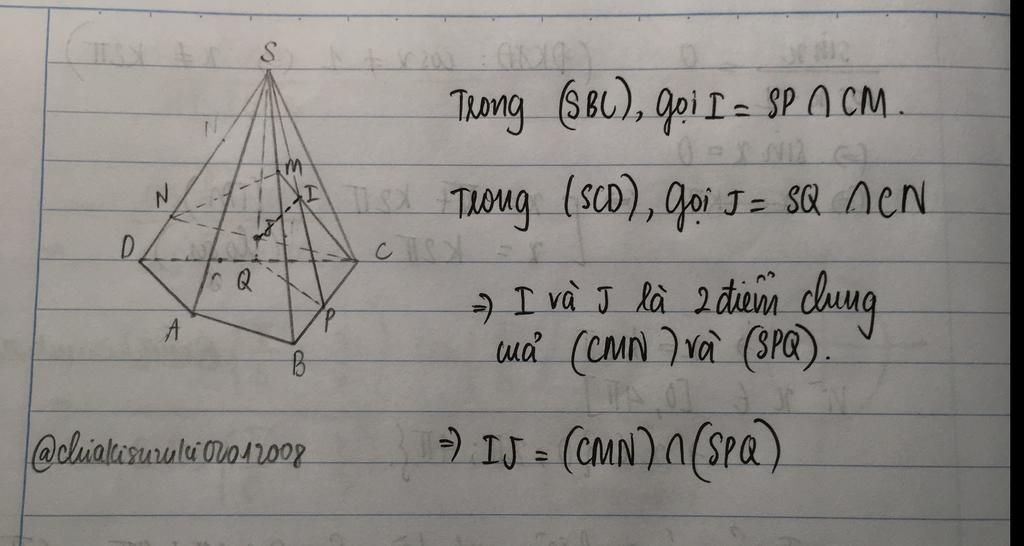 S
Trong (SBC), gọi I = SP ∩ CM.
M
I
N
Trong (SCD), gọi J = SQ ∩ CN
J
D
C
Q
=> I và J là 2 điểm chung
P
A
của (CMN) và (SPQ).
B
@chiakisuzuki02012008
=> IJ = (CMN) ∩ (SPQ)